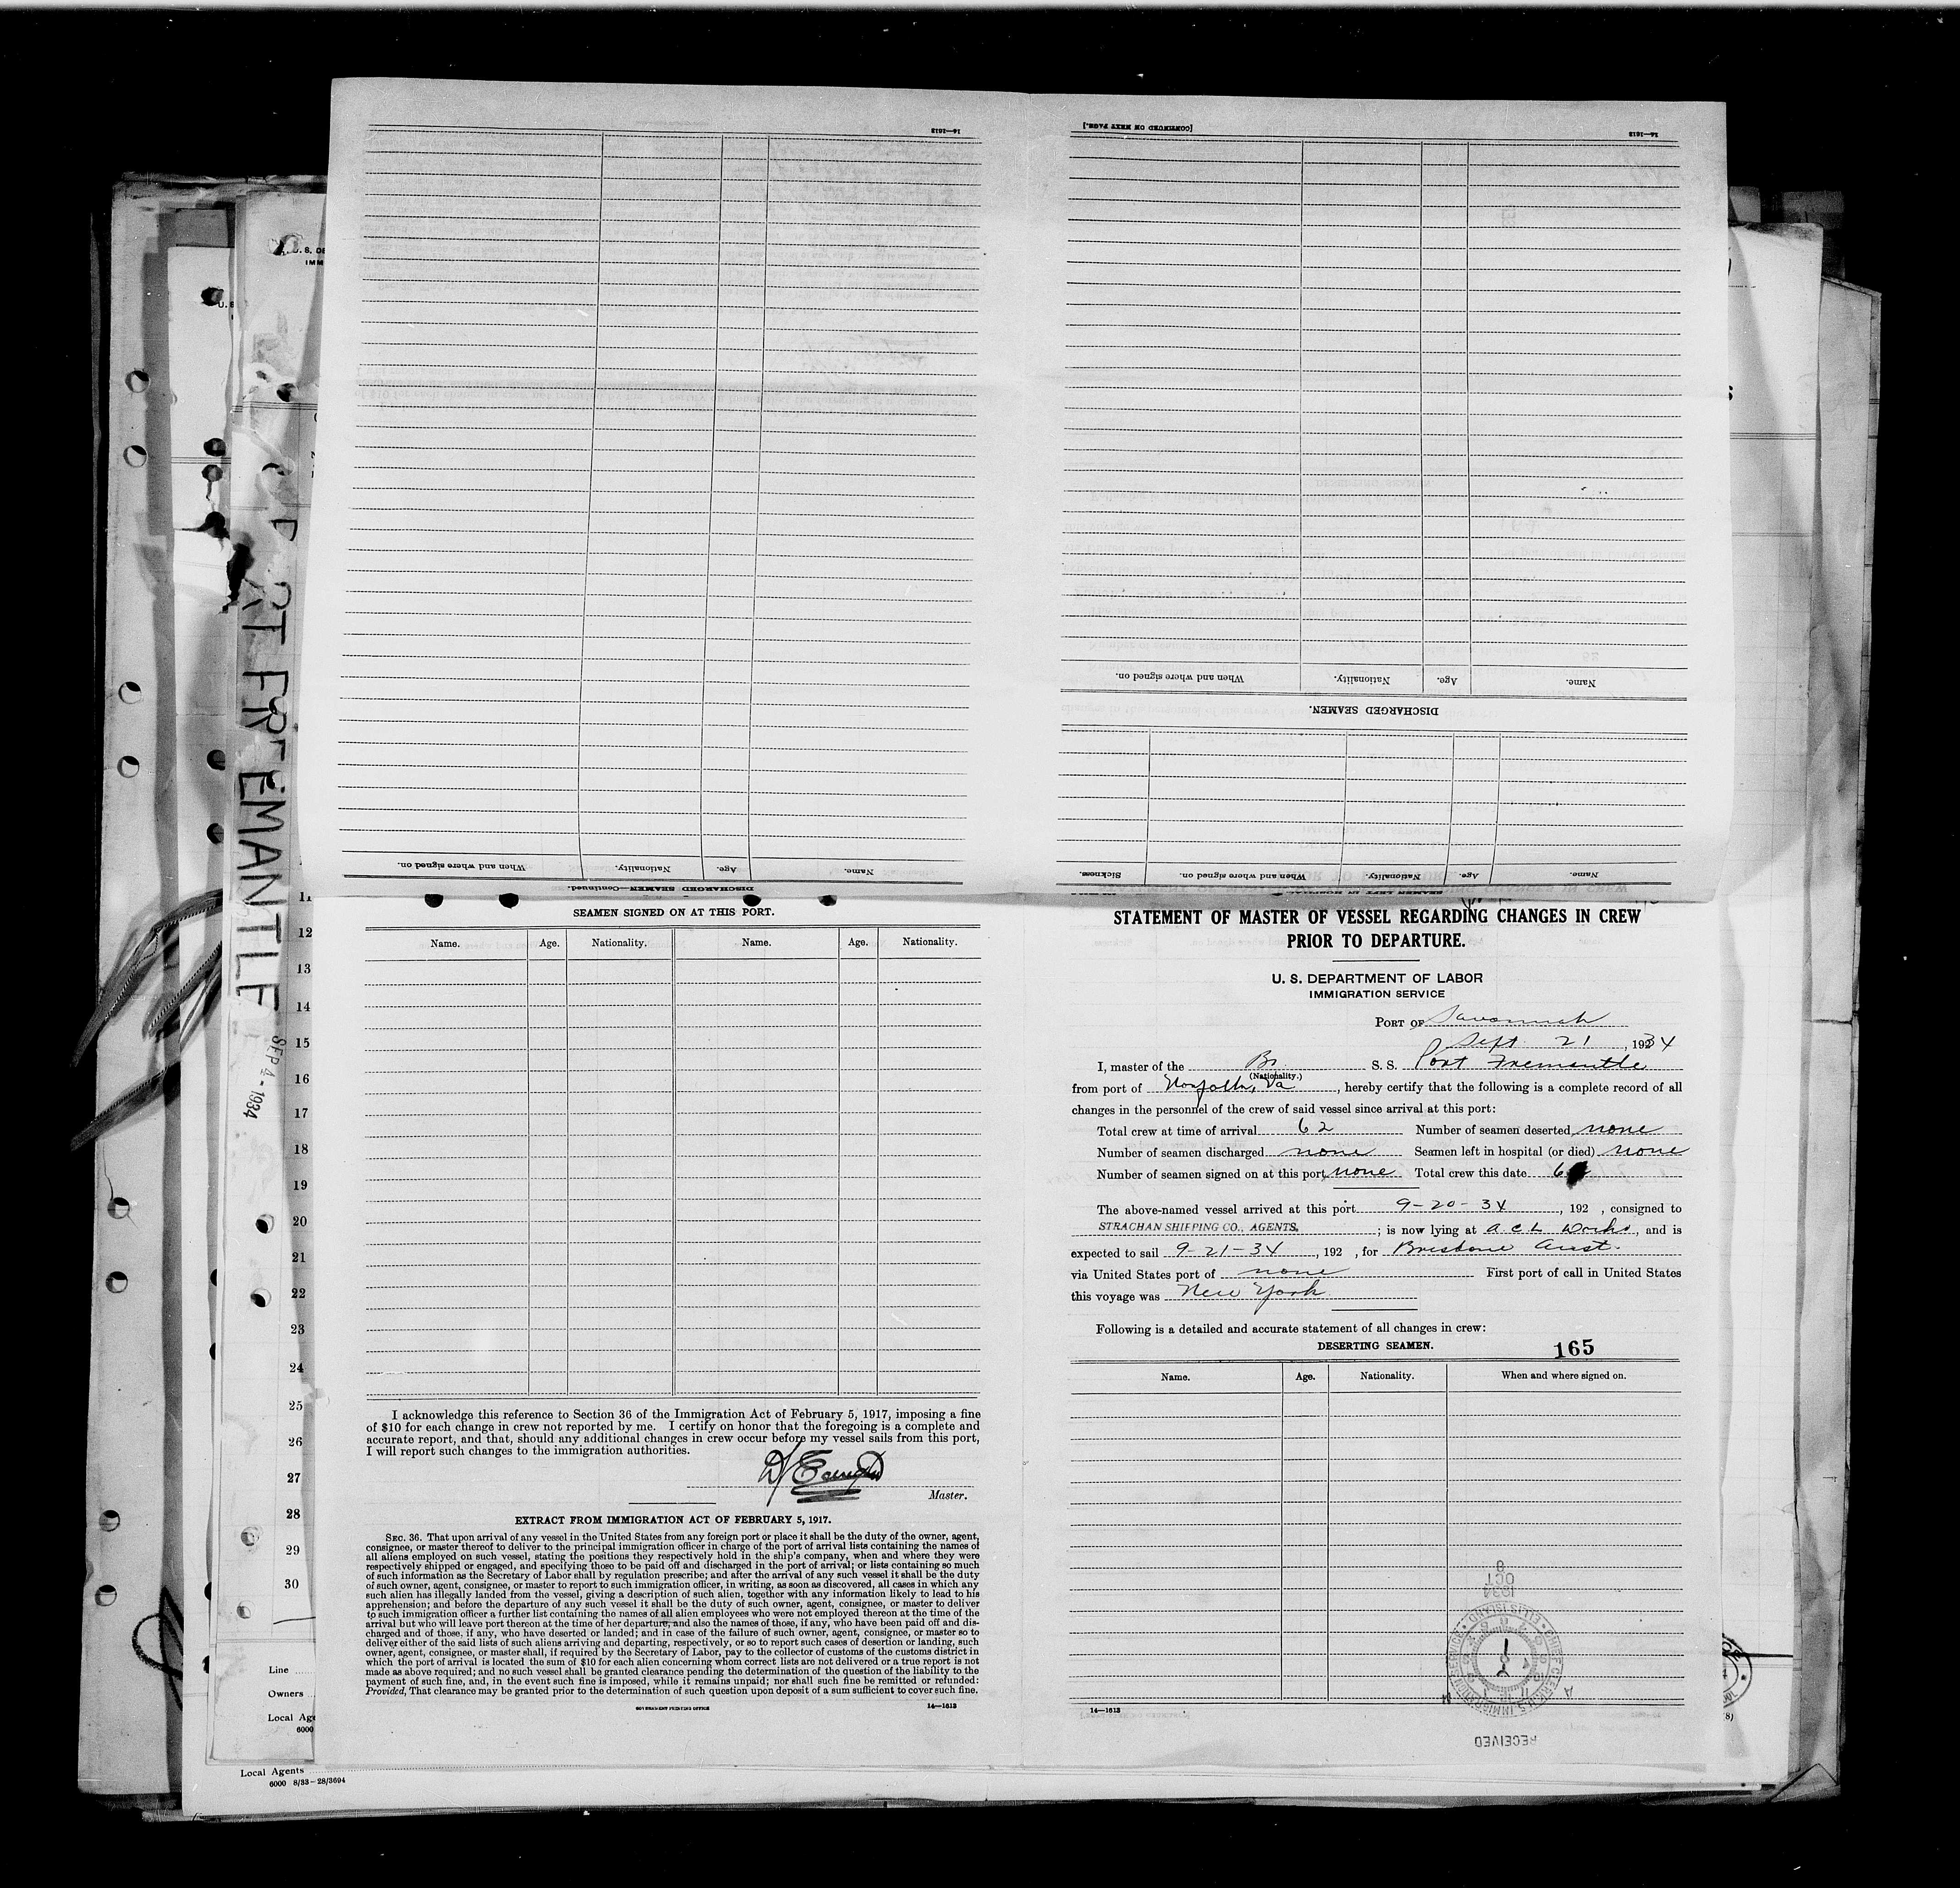 [CONTINUED ON NEXT PAGE.]
14—1613
14—1613
Name. Age. Nationality. When and where signed on.
DISCHARGED SEAMEN.
Name. Age. Nationality. When and where signed on. Sickness.
SEAMEN LEFT IN HOSPITAL
Name. Age. Nationality. When and where signed on.
DISCHARGED SEAMEN—Continued.
U. S. DE
IMM
PORT FREMANTLE
SEP 4 - 1934
11
12
13
14
15
16
17
18
19
20
21
22
23
24
25
26
27
28
29
30
Line
Owners
Local Age
6000
Local Agents
6000 8/33-28/3694
SEAMEN SIGNED ON AT THIS PORT.
Name. Age. Nationality. Name. Age. Nationality.
I acknowledge this reference to Section 36 of the Immigration Act of February 5, 1917, imposing a fine
of $10 for each change in crew not reported by me. I certify on honor that the foregoing is a complete and
accurate report, and that, should any additional changes in crew occur before my vessel sails from this port,
I will report such changes to the immigration authorities.
Master.
EXTRACT FROM IMMIGRATION ACT OF FEBRUARY 5, 1917.
SEC. 36. That upon arrival of any vessel in the United States from any foreign port or place it shall be the duty of the owner, agent,
consignee, or master thereof to deliver to the principal immigration officer in charge of the port of arrival lists containing the names of
all aliens employed on such vessel, stating the positions they respectively hold in the ship's company, when and where they were
respectively shipped or engaged, and specifying those to be paid off and discharged in the port of arrival; or lists containing so much
of such information as the Secretary of Labor shall by regulation prescribe; and after the arrival of any such vessel it shall be the duty
of such owner, agent, consignee, or master to report to such immigration officer, in writing, as soon as discovered, all cases in which any
such alien has illegally landed from the vessel, giving a description of such alien, together with any information likely to lead to his
apprehension; and before the departure of any such vessel it shall be the duty of such owner, agent, consignee, or master to deliver
to such immigration officer a further list containing the names of all alien employees who were not employed thereon at the time of the
arrival but who will leave port thereon at the time of her departure, and also the names of those, if any, who have been paid off and dis-
charged and of those, if any, who have deserted or landed; and in case of the failure of such owner, agent, consignee, or master so to
deliver either of the said lists of such aliens arriving and departing, respectively, or so to report such cases of desertion or landing, such
owner, agent, consignee, or master shall, if required by the Secretary of Labor, pay to the collector of customs of the customs district in
which the port of arrival is located the sum of $10 for each alien concerning whom correct lists are not delivered or a true report is not
made as above required; and no such vessel shall be granted clearance pending the determination of the question of the liability to the
payment of such fine, and, in the event such fine is imposed, while it remains unpaid; nor shall such fine be remitted or refunded:
Provided, That clearance may be granted prior to the determination of such question upon deposit of a sum sufficient to cover such fine.
GOVERNMENT PRINTING OFFICE 14—1613
STATEMENT OF MASTER OF VESSEL REGARDING CHANGES IN CREW
PRIOR TO DEPARTURE.
U. S. DEPARTMENT OF LABOR
IMMIGRATION SERVICE
PORT OF Savannah
Sept 21, 1934
I, master of the Br. S. S. Port Fremantle
(Nationality.)
from port of Norfolk, Va, hereby certify that the following is a complete record of all
changes in the personnel of the crew of said vessel since arrival at this port:
Total crew at time of arrival 62 Number of seamen deserted none
Number of seamen discharged none Seamen left in hospital (or died) none
Number of seamen signed on at this port none Total crew this date 6
The above-named vessel arrived at this port 9-20-34, 192 , consigned to
STRACHAN SHIPPING CO., AGENTS, ; is now lying at A.C.L Docks, and is
expected to sail 9-21-34, 192 , for Brisbane Aust.
via United States port of none First port of call in United States
this voyage was New York
Following is a detailed and accurate statement of all changes in crew:
DESERTING SEAMEN. 165
Name. Age. Nationality. When and where signed on.
8
OCT
1934
ELLIS ISLAND
RECEIVED
14—1613